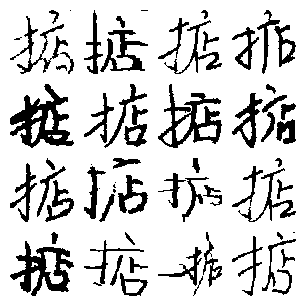 掂掂掂掂
掂掂掂掂
掂掂掂掂
掂掂掂掂